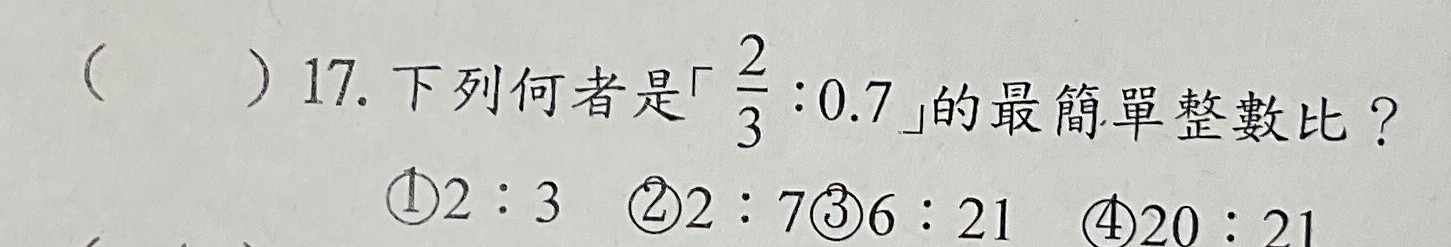 (　　) 17. 下列何者是「2/3：0.7」的最簡單整數比？
①2：3　②2：7③6：21　④20：21